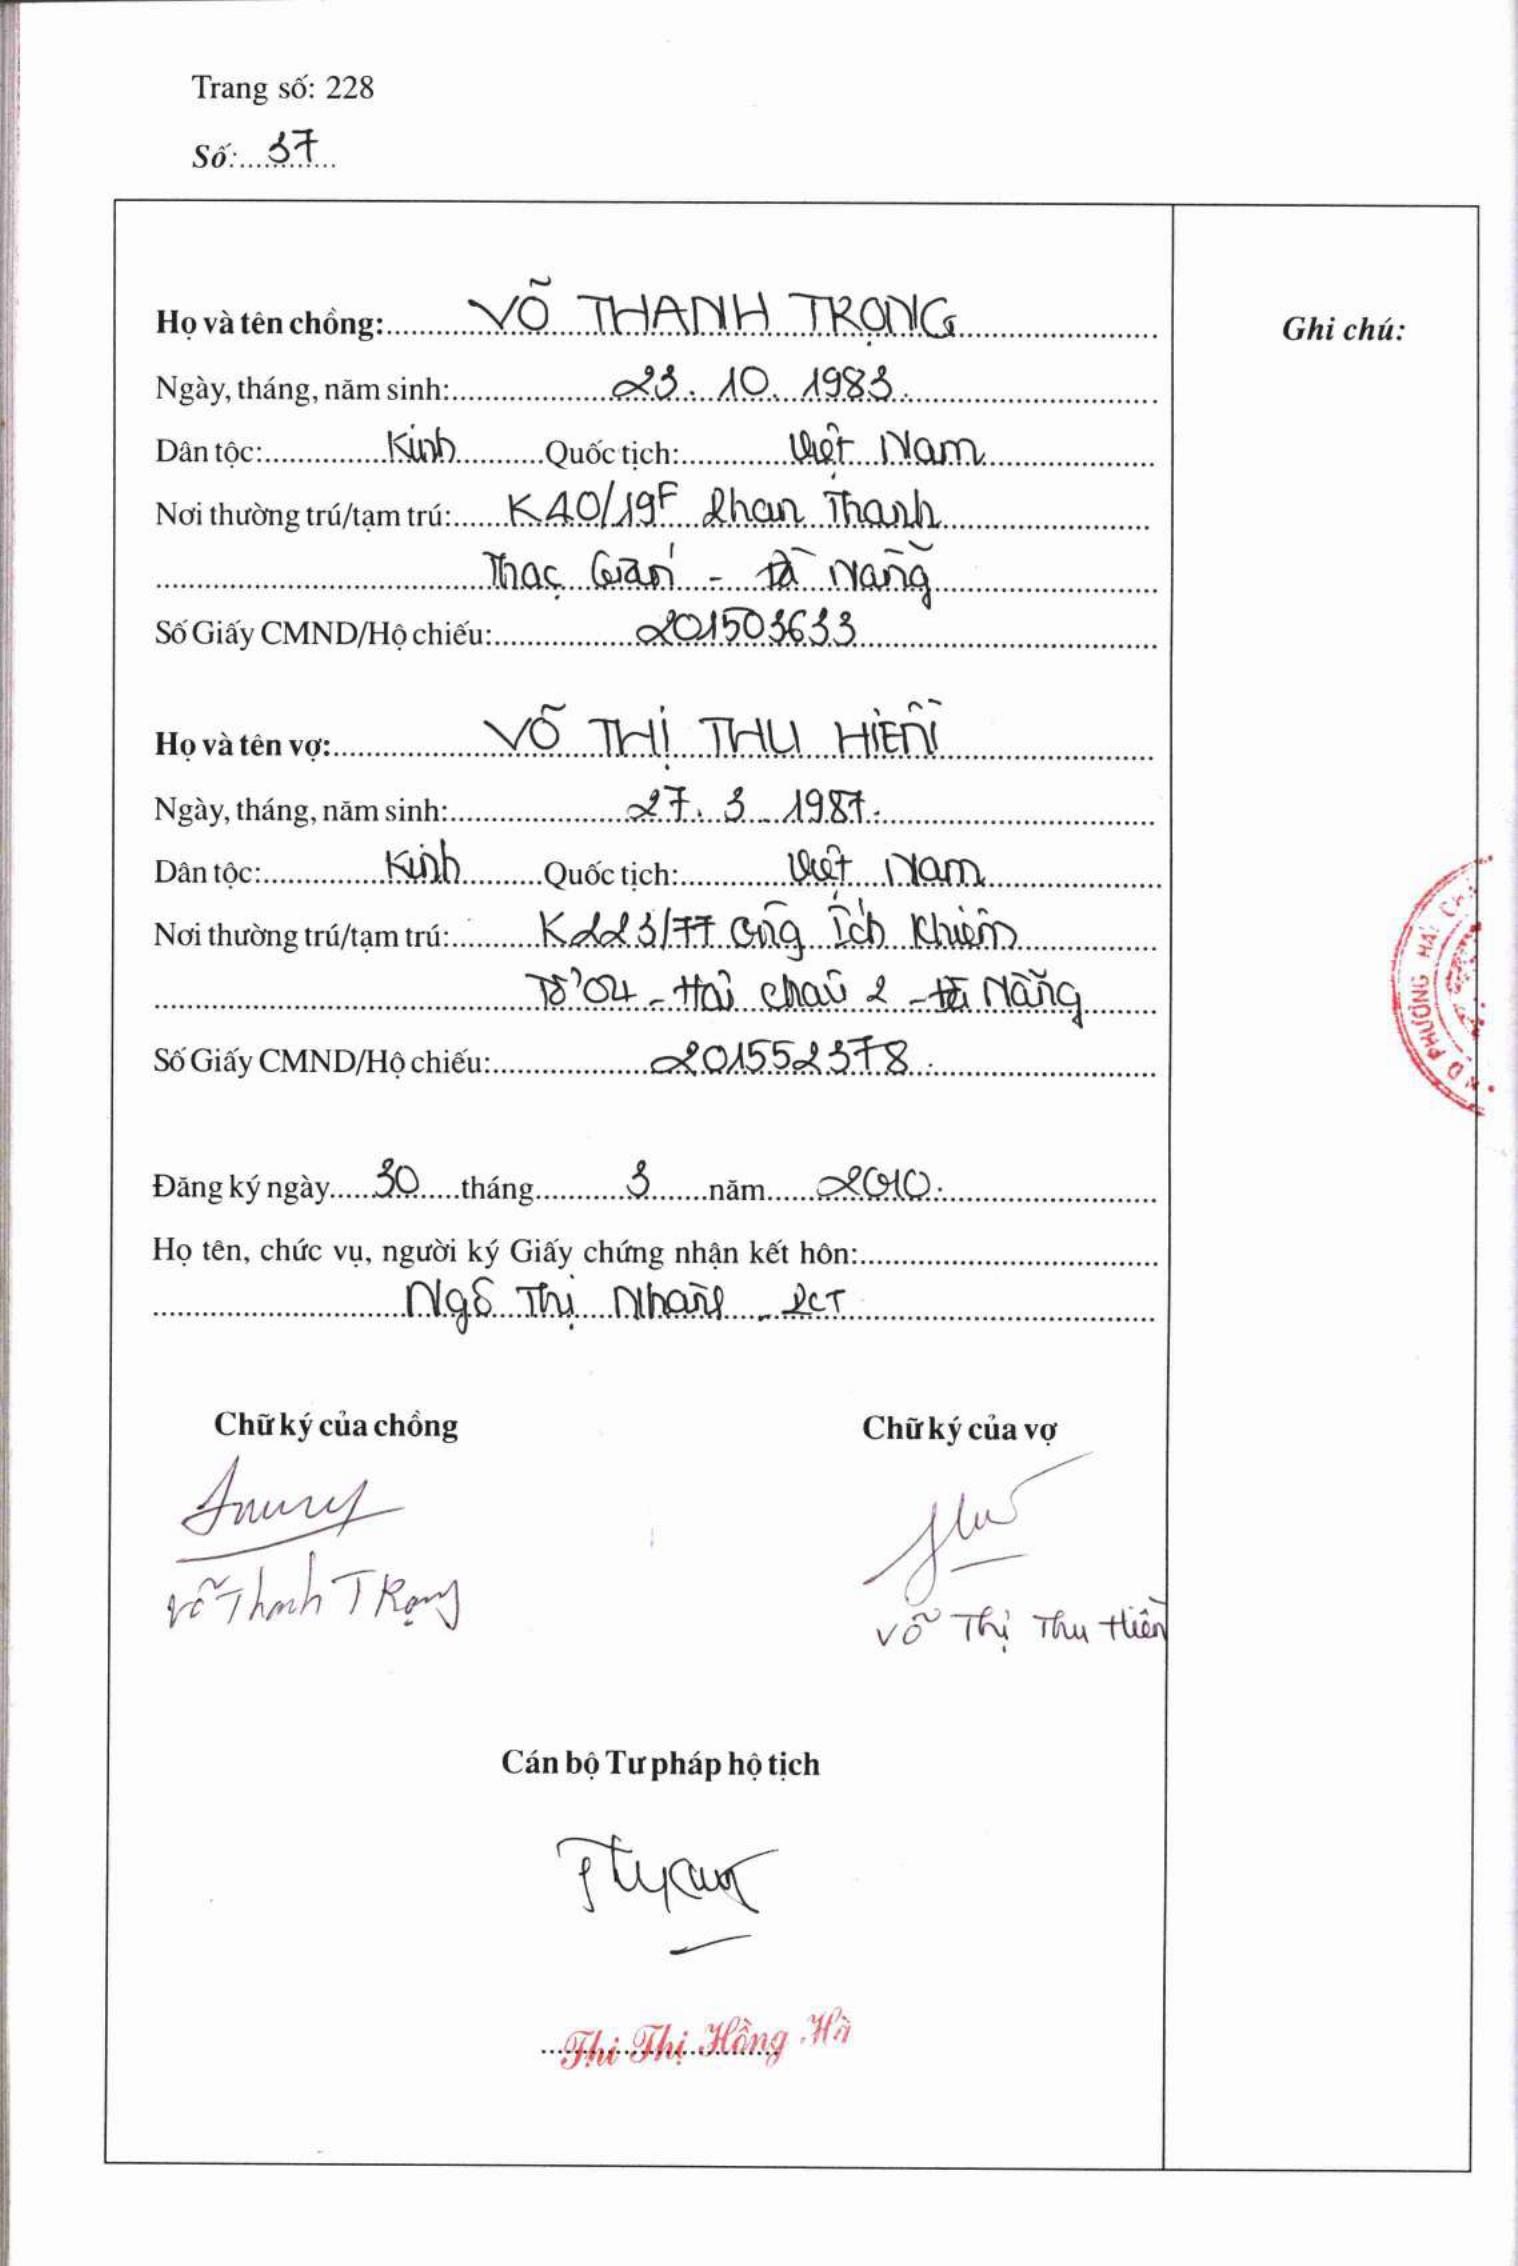 Trang số: 228
Số: 37
Họ và tên chồng: VÕ THANH TRỌNG
Ghi chú:
Ngày, tháng, năm sinh: 23.10.1983.
Dân tộc: Kinh Quốc tịch: Việt Nam
Nơi thường trú/tạm trú: K40/19F Phan Thanh
Thạc Gián - Đà Nẵng
Số Giấy CMND/Hộ chiếu: 201503633
Họ và tên vợ: VÕ THỊ THU HIỀN
Ngày, tháng, năm sinh: 27.3.1987.
Dân tộc: Kinh Quốc tịch: Việt Nam
Nơi thường trú/tạm trú: K223/77 Ông Ích Khiêm
Tổ 04 - Hải Châu 2 - Đà Nẵng
Số Giấy CMND/Hộ chiếu: 201552378.
PHƯỜNG HẢI
Đăng ký ngày 30 tháng 3 năm 2010.
Họ tên, chức vụ, người ký Giấy chứng nhận kết hôn:
Ngô Thị Nhàn - PCT
Chữ ký của chồng
Chữ ký của vợ
Võ Thanh Trọng
Võ Thị Thu Hiền
Cán bộ Tư pháp hộ tịch
Thi Thị Hồng Hà